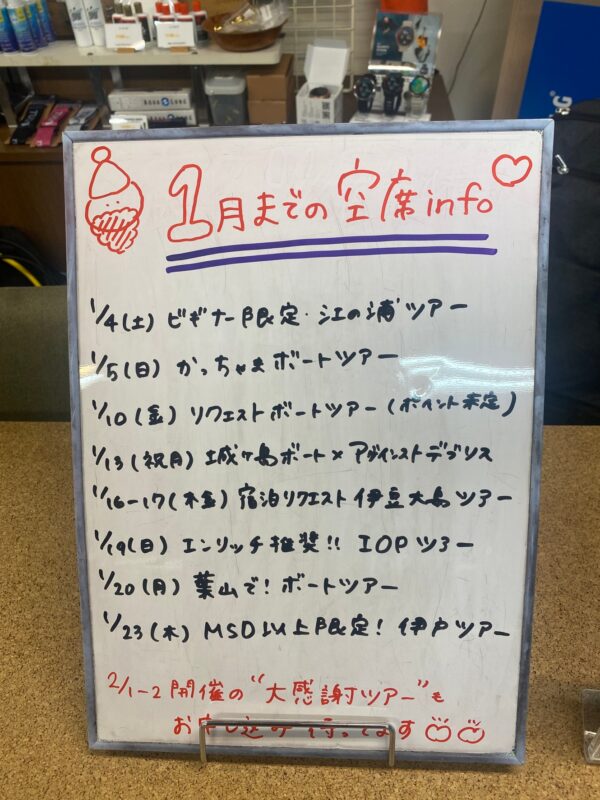 AQUA LUNG
1月までの空席info
1/4(土) ビギナー限定・江の浦ツアー
1/5(日) かっちゃまボートツアー
1/10(金) リクエストボートツアー(ポイント未定)
1/13(祝月) 城ヶ島ボート×アゲインストデブリス
1/16-17(木金) 宿泊リクエスト伊豆大島ツアー
1/19(日) エンリッチ推奨!! IOPツアー
1/20(月) 葉山で!ボートツアー
1/23(木) MSD以上限定! 伊戸ツアー
2/1-2開催の"大感謝ツアー"も
お申し込み待ってます